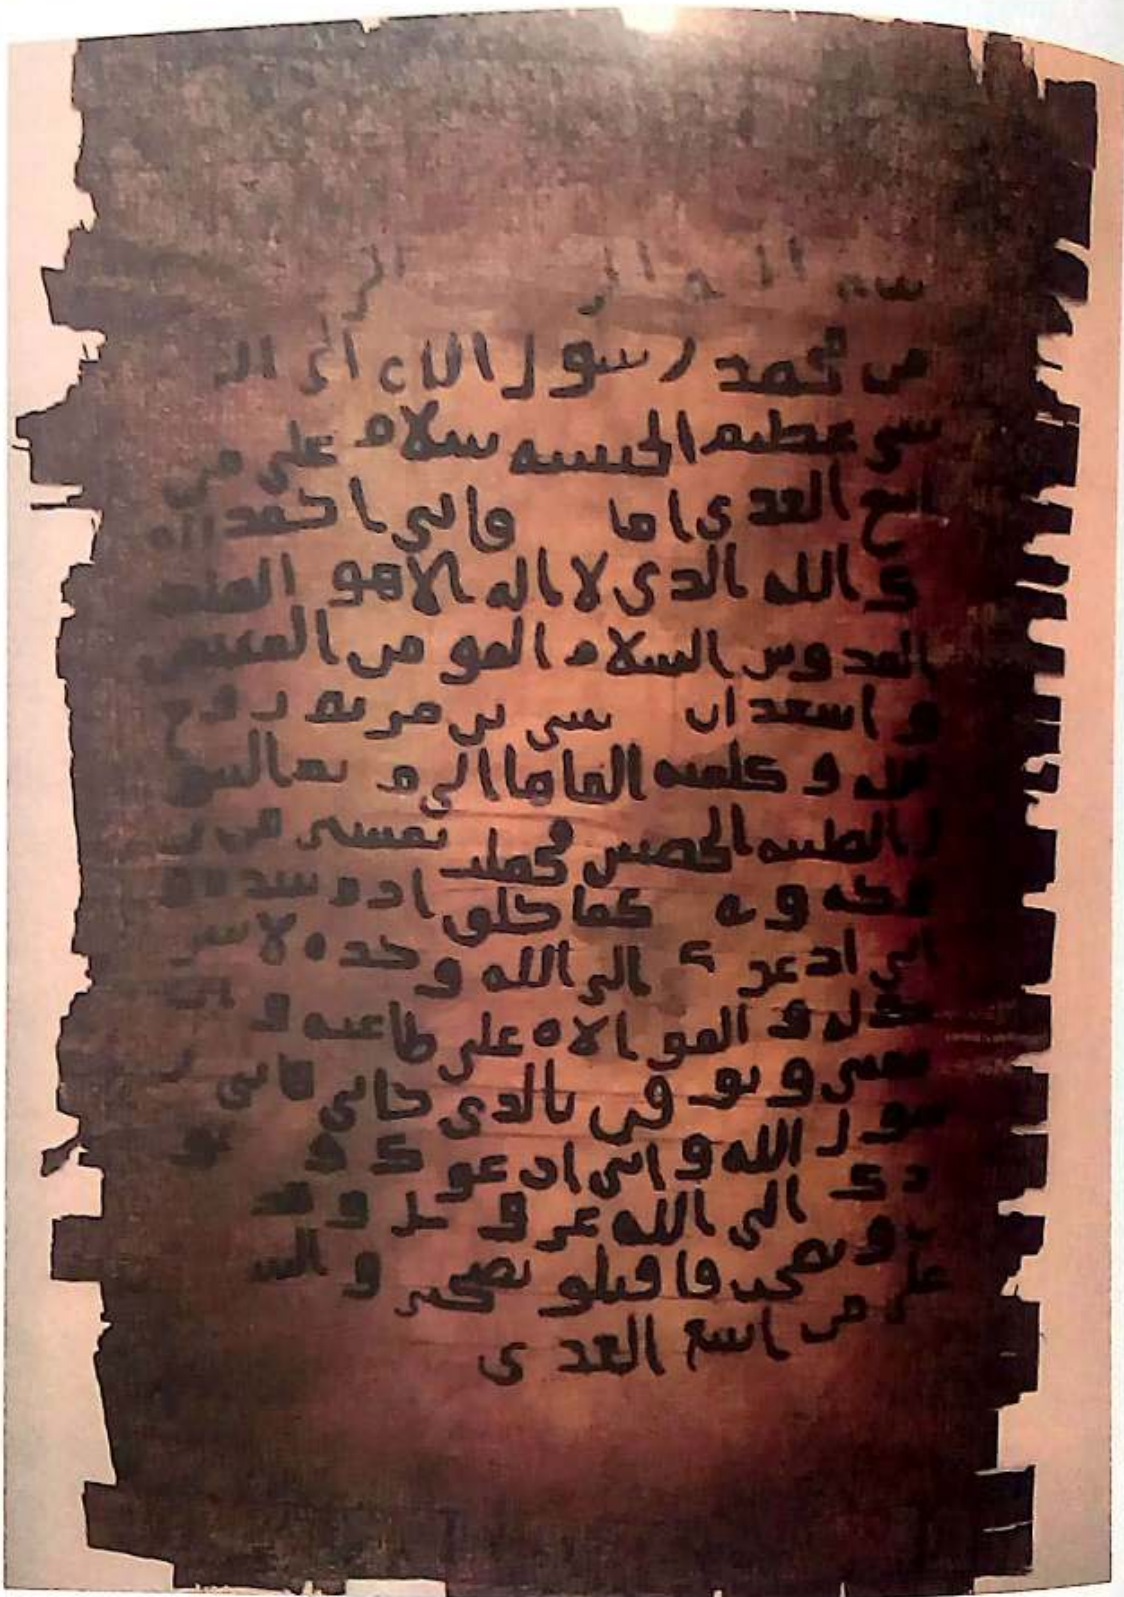 من محمد رسول الله الى النجا
شي عظيم الحبشة سلام على من
اتبع الهدى اما فاني احمد اليـ
ك الله الذي لا اله الا هو الملك
القدوس السلام المومن المهيمن
و اشهد ان سى بن مريم روح
الله و كلمته القاها الى مريم البتو
ل الطيبة الحصينة فحملت بعيسى من ر
وحه و كما خلق ادم بيده و
اني ادعوك الى الله وحده لا شر
يك له و الموالاة على طاعته و ان
تتبعني و توقن بالذي جاني فاني ر
سول الله و اني ادعوك و جنو
دك الى الله عز و جل و قد
و نصحت فاقبلو نصحي و السـ
على من اتبع الهدى